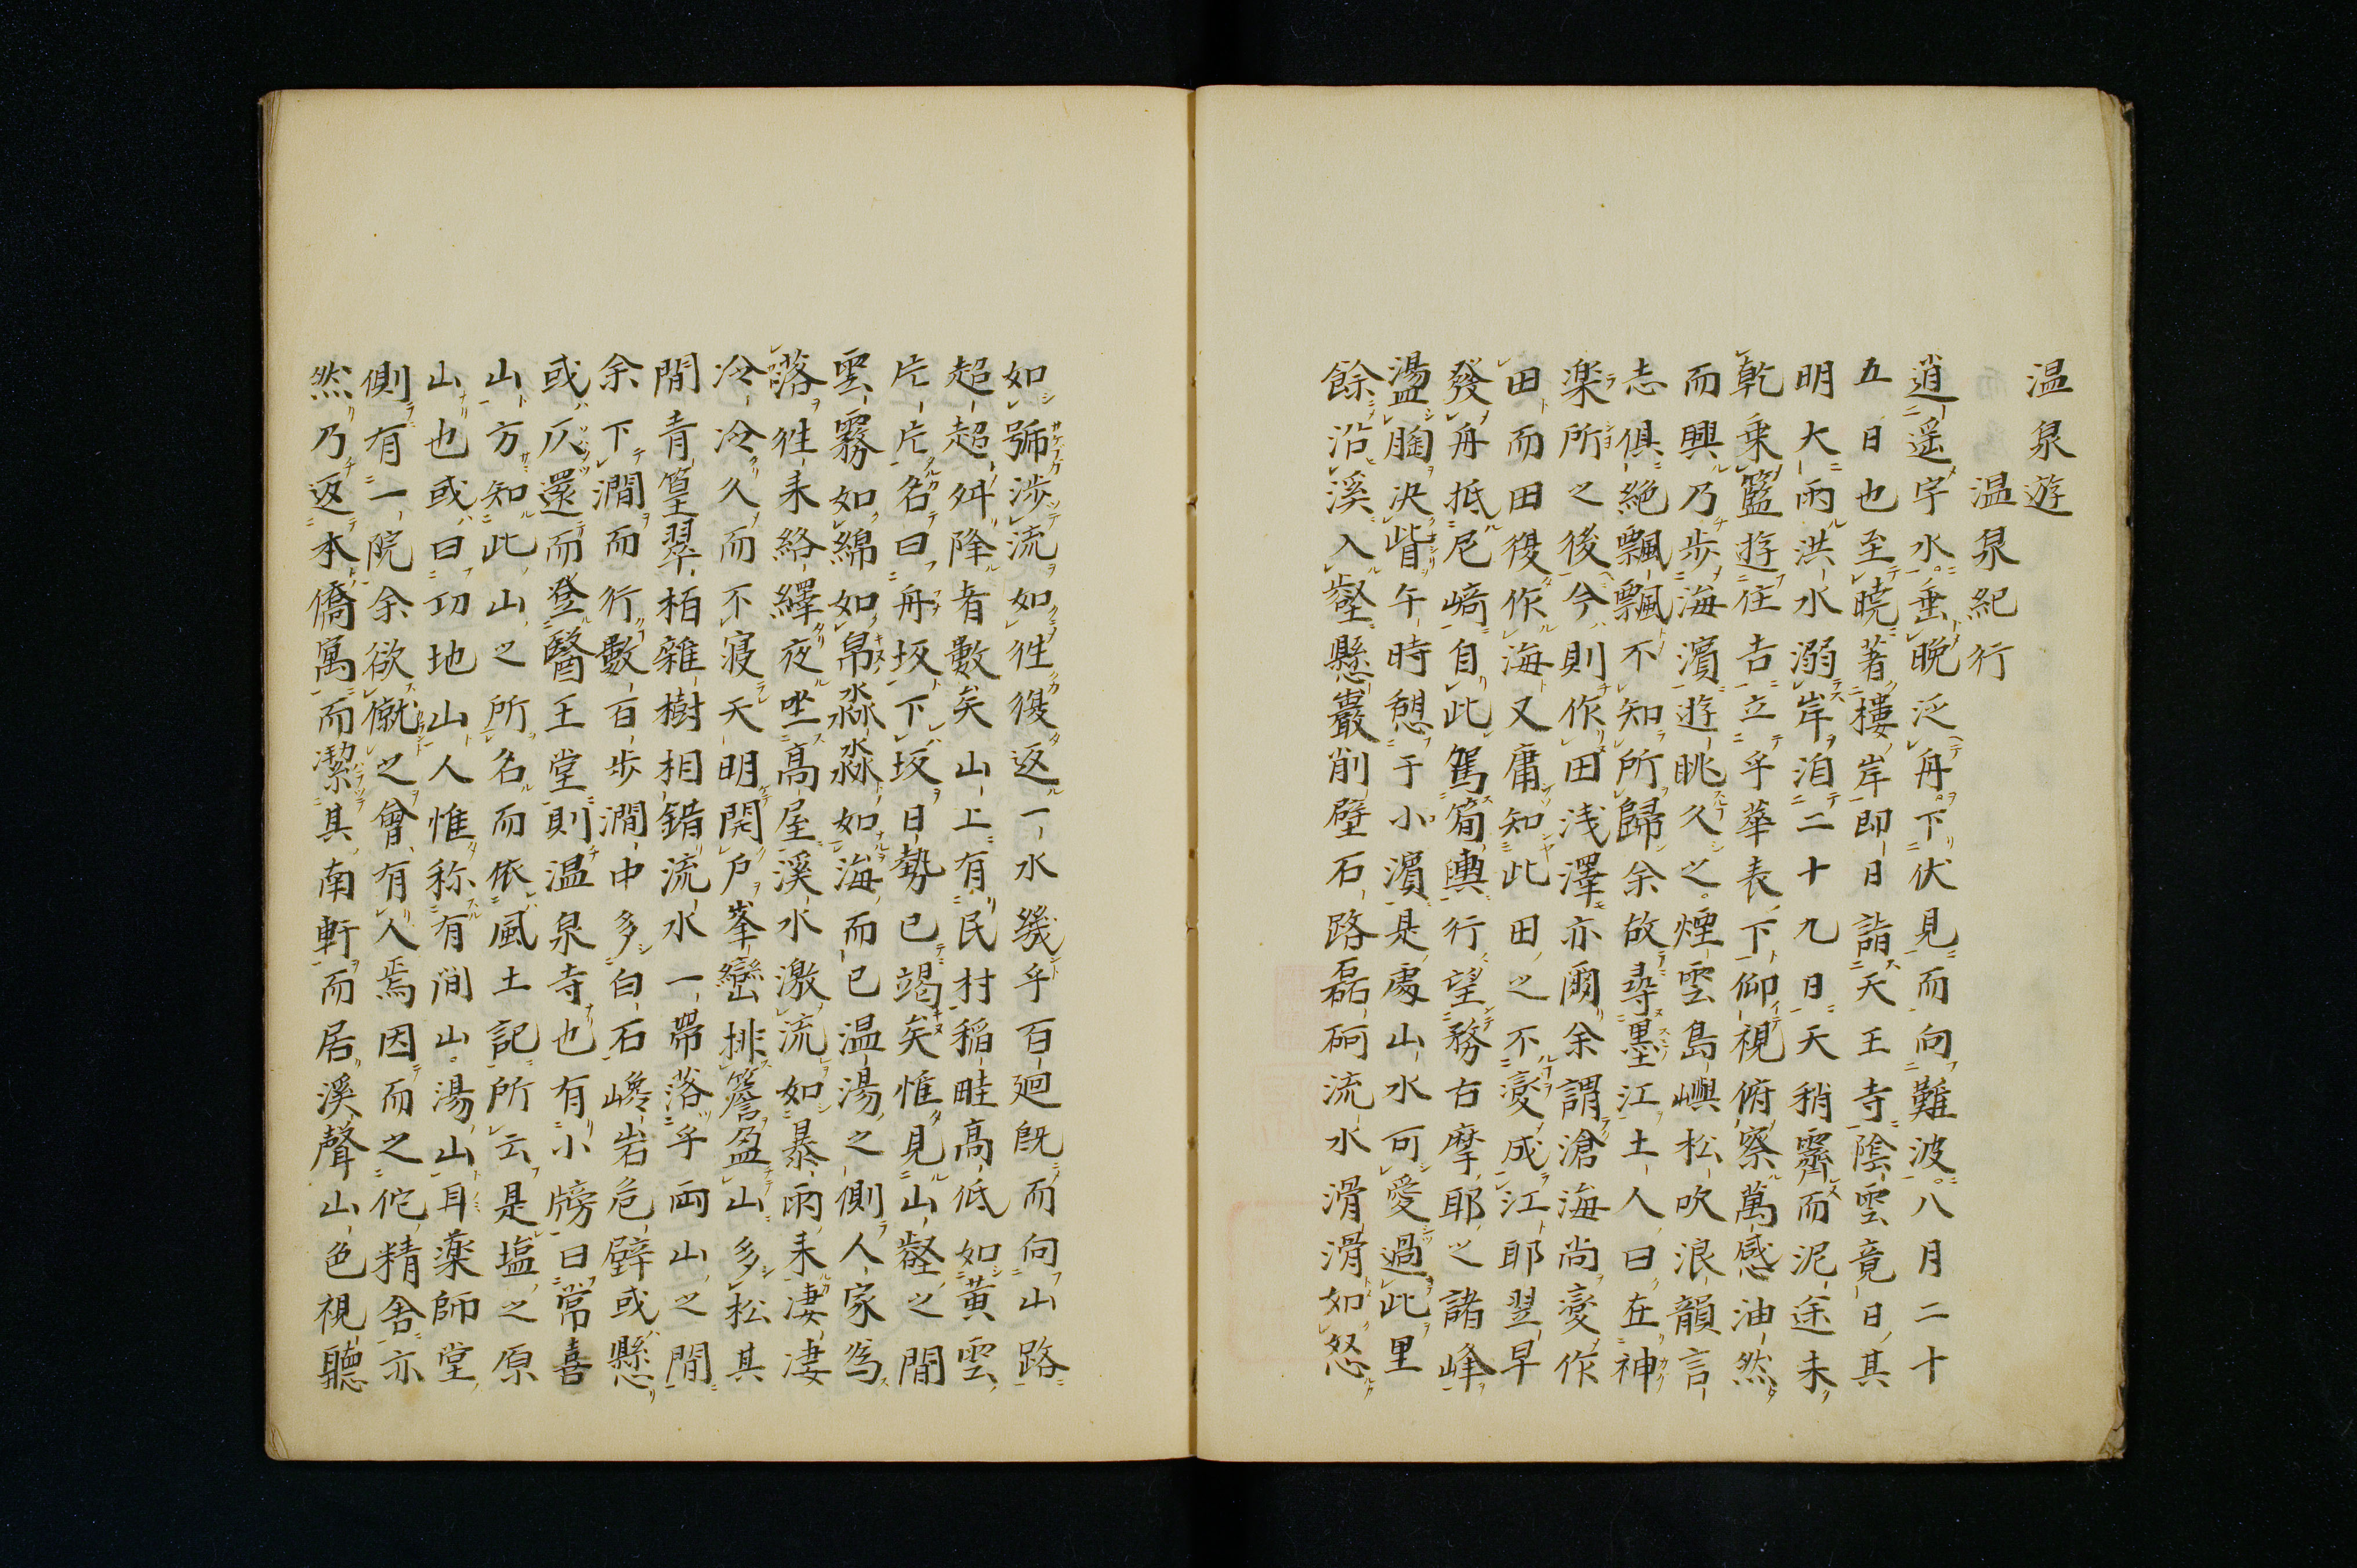 温泉遊
温泉紀行
逍遥宇水垂晩泛舟下伏見而向難波八月二十
五日也至暁著樓岸即日詣天王寺陰雲竟日其
明大雨洪水溺岸洎二十九日天稍霽而泥途未
乾乗籃遊住吉立乎華表下仰視俯察萬感油然
而興乃歩海濱遊眺久之煙雲島嶼松吹浪韻言
志倶絶飄飄不知所歸余故尋墨江土人曰在神
楽所之後今則作田浅澤亦爾余謂滄海尚変作
田而田復作海又庸知此田之不変成江耶翌早
發舟抵尼﨑自此駕筍輿行望務古摩耶之諸峰
盪胸決眥午時憩于小濱是處山水可愛過此里
餘沿溪入壑懸巖削壁石路磊砢流水滑滑如怒
如號渉流如徃復返一水幾乎百廻既而向山路
超超舛降者數矣山上有民村稲畦高低如黄雲
片片名曰舟坂下坂日勢已竭矣惟見山壑之間
雲霧如綿如帛淼淼如海而已温湯之側人家為
落徃来絡繹夜坐高屋溪水激流如暴雨来凄凄
冷冷久而不寝天明開戸峯巒排簷盈山多松其
間青篁翠柏雑樹相錯流水一帯落乎両山之間
余下澗而行數百歩澗中多白石巉岩危礕或懸
或仄還而登醫王堂則温泉寺也有小牓曰常喜
山方知此山之所名而依風土記所云是塩之原
山也或曰功地山人惟称有間山湯山耳薬師堂
側有一院余欲僦之曾有人焉因而之佗精舎亦
然乃返本僑寓而潔其南軒而居溪聲山色視聽